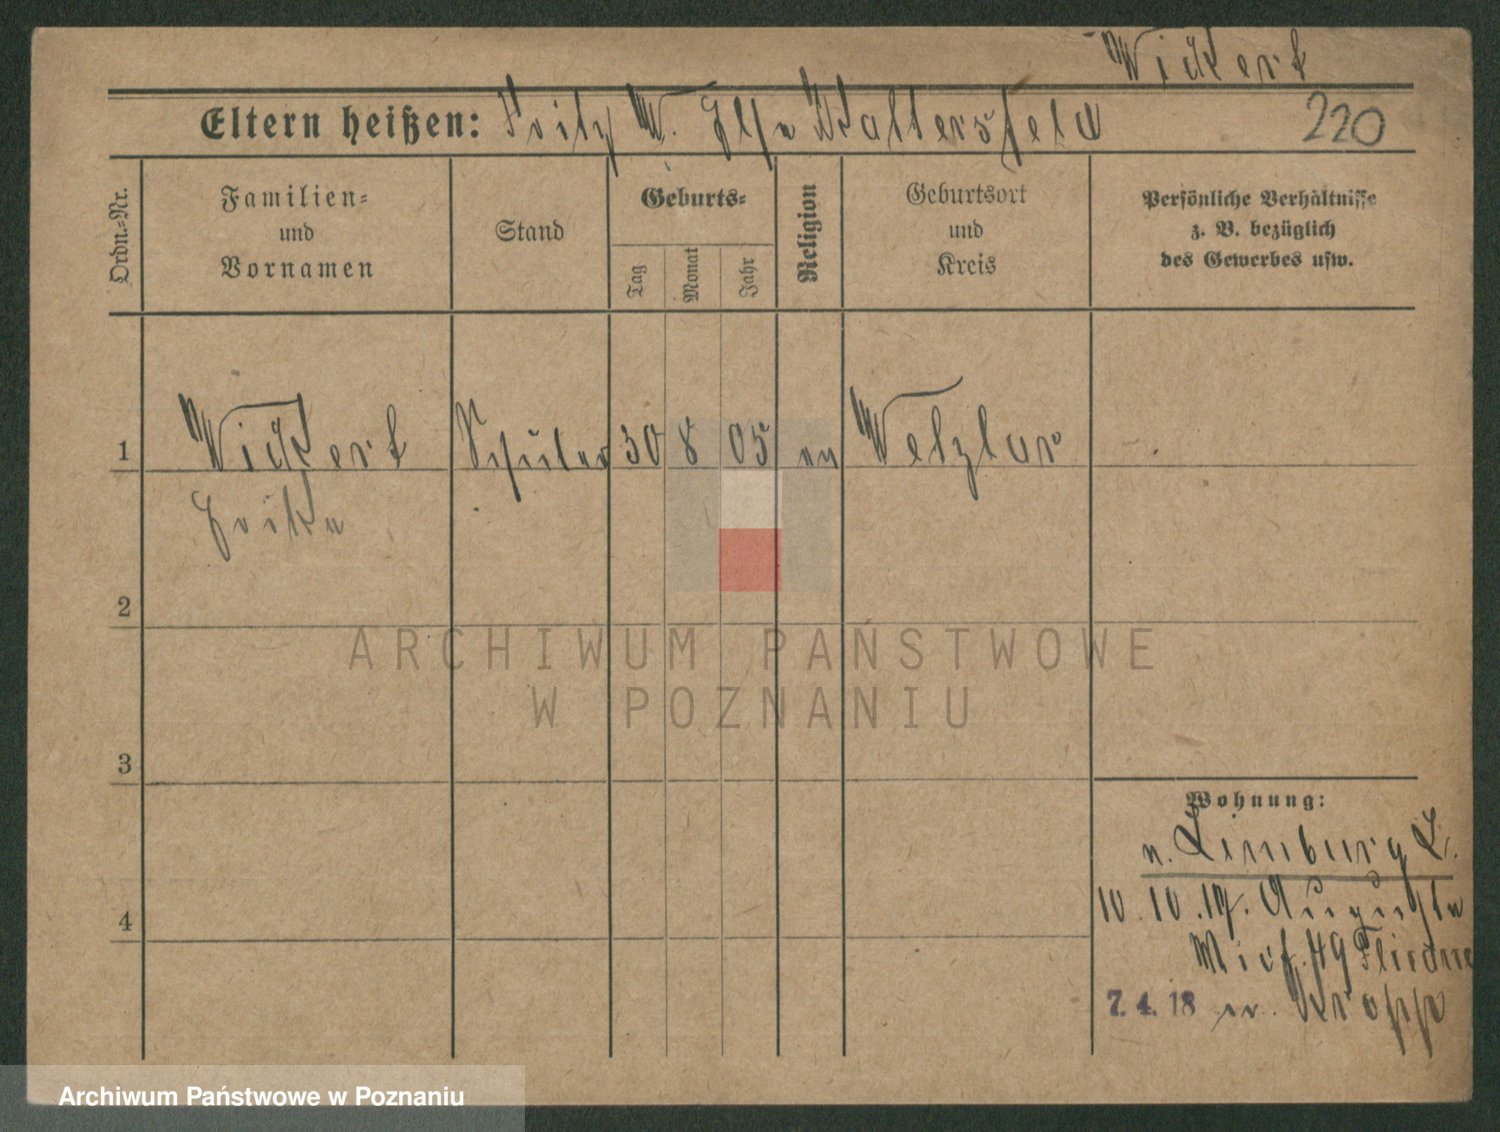 Wickert
Eltern heißen: Fritz W. Else Waltersfeld
220
Ordn.-Nr.
Familien-
und
Vornamen
Stand
Geburts-
Tag
Monat
Jahr
Religion
Geburtsort
und
Kreis
Persönliche Verhältnisse
z. B. bezüglich
des Gewerbes usw.
1
Wickert Schüler 30 8 05 ev Wetzlar
2
3
Wohnung:
n. Limburg L.
10.10.17. Auguste
4
49
7. 4. 18 Kropp
ARCHIWUM PAŃSTWOWE
W POZNANIU
Archiwum Państwowe w Poznaniu